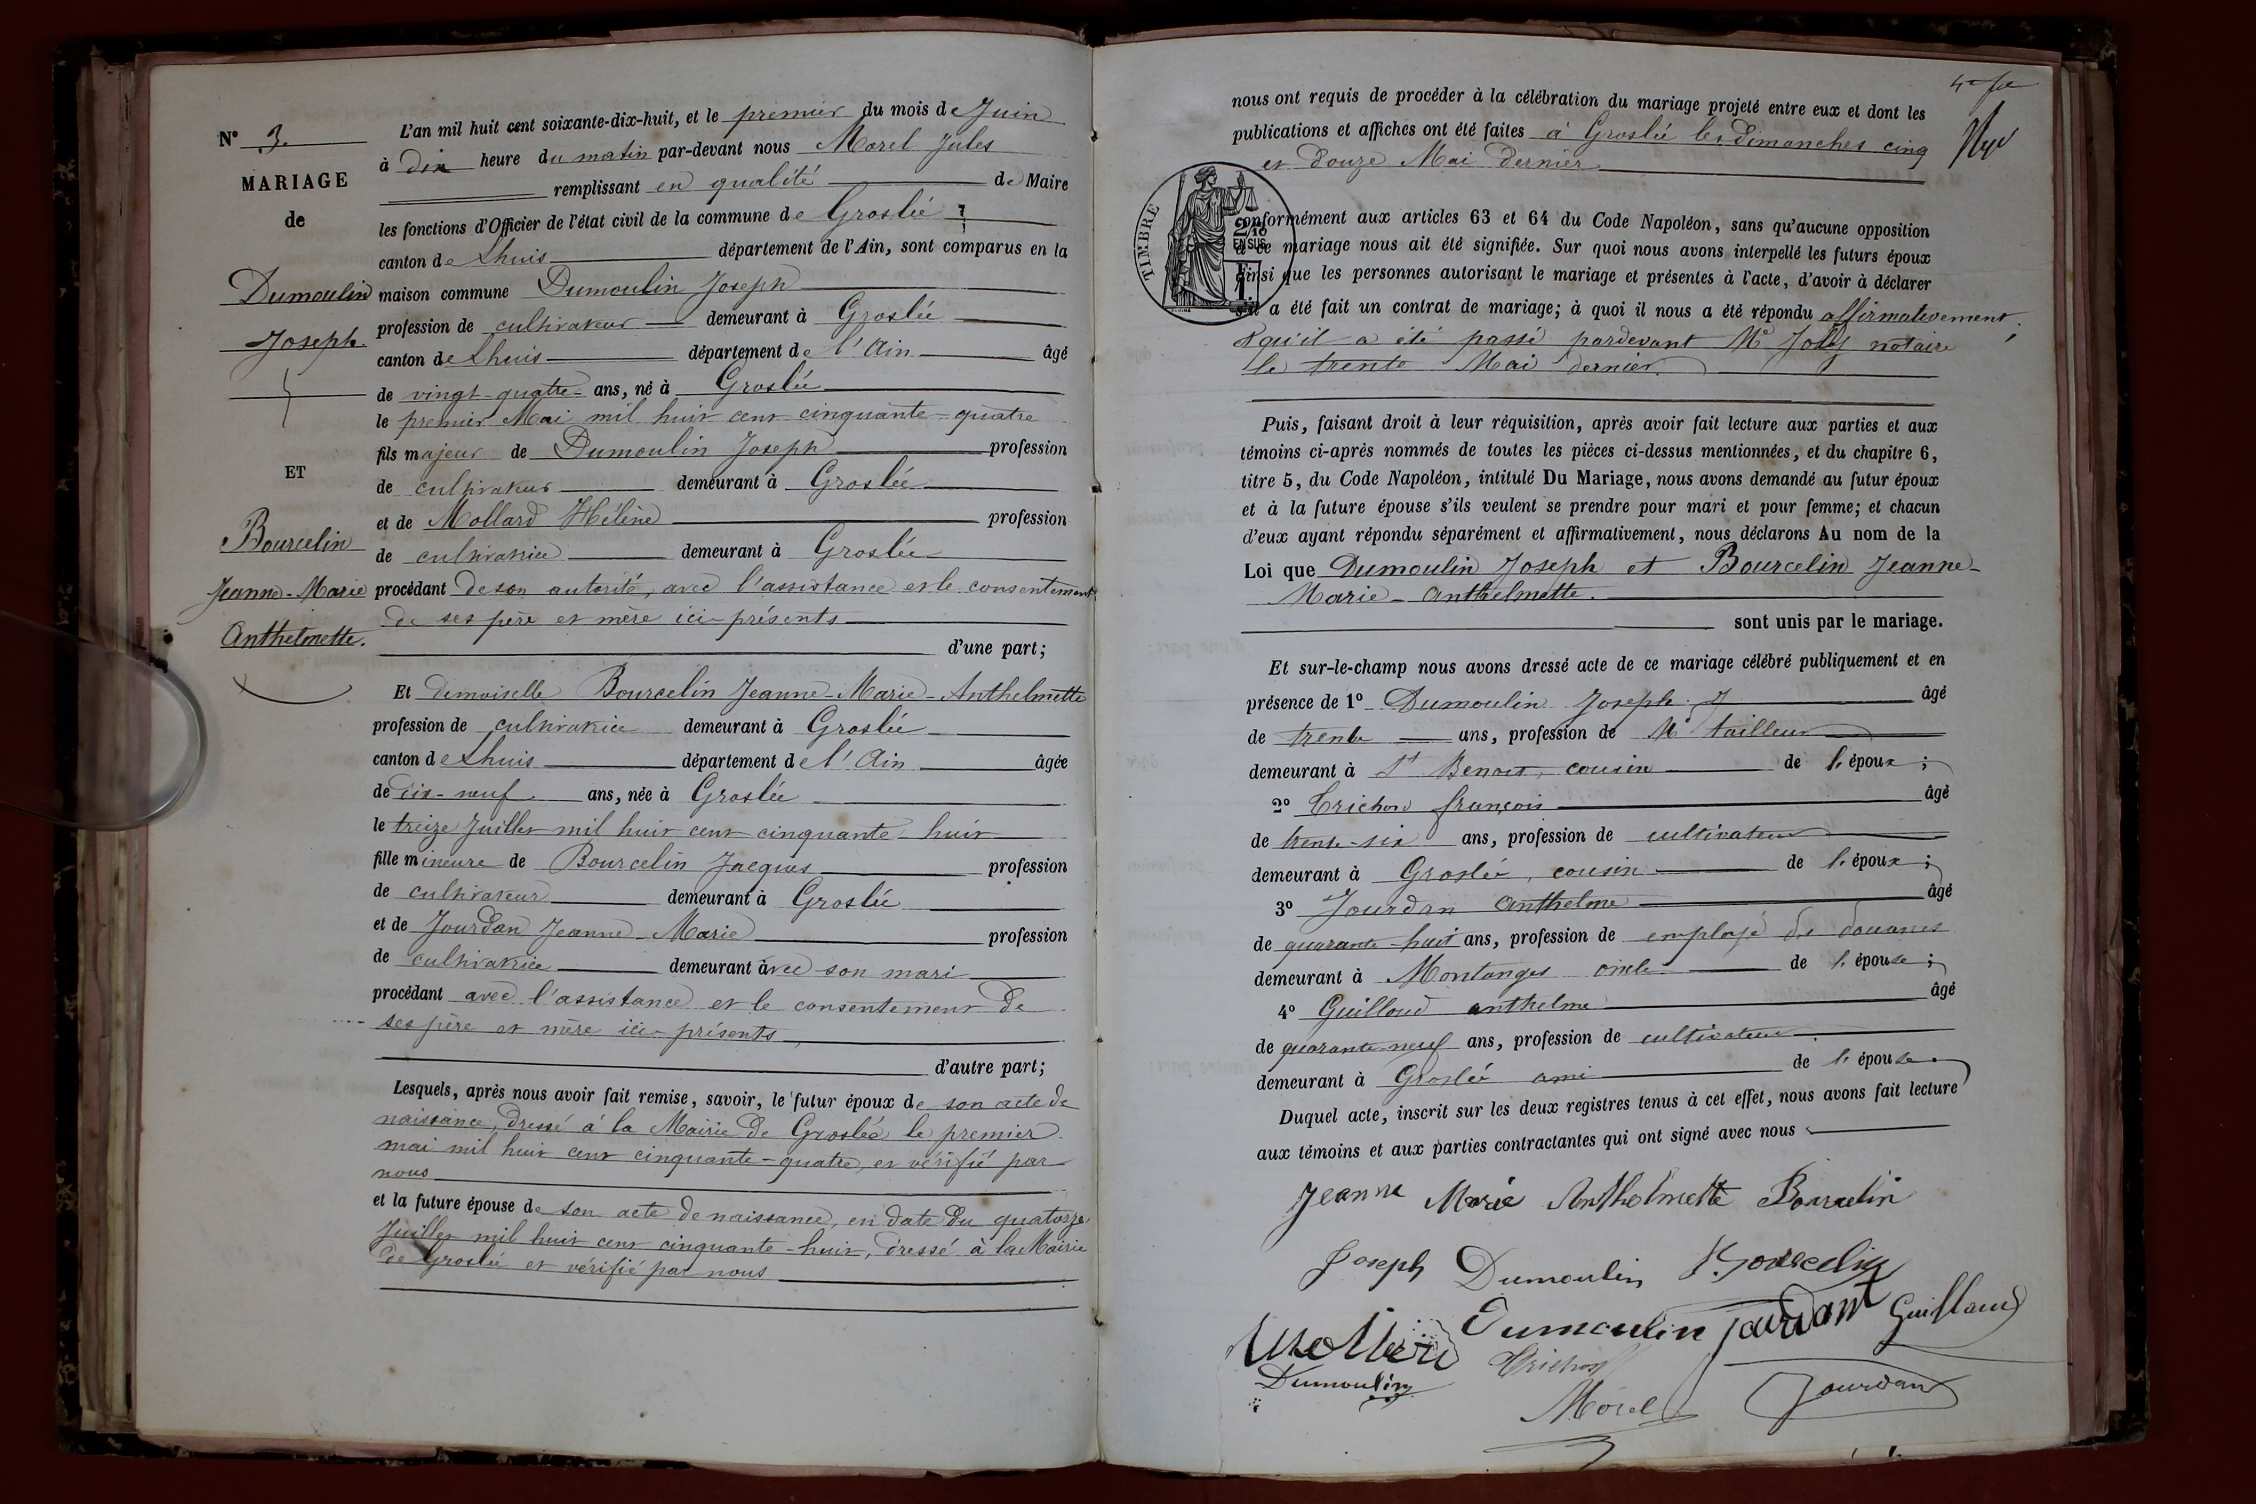 N° 3.
MARIAGE
de
Dumoulin
Joseph.
ET
Bourcelin
Jeanne-Marie
Anthelmette.
L'an mil huit cent soixante-dix-huit, et le premier du mois de Juin
à dix heure du matin par-devant nous Morel Jules
remplissant en qualité de Maire
les fonctions d'Officier de l'état civil de la commune de Groslée
canton de Lhuis département de l'Ain, sont comparus en la
maison commune Dumoulin Joseph
profession de cultivateur demeurant à Groslée
canton de Lhuis département de l'Ain âgé
de vingt-quatre ans, né à Groslée
le premier Mai mil huit cent cinquante-quatre
fils majeur de Dumoulin Joseph profession
de cultivateur demeurant à Groslée
et de Mollard Hélène profession
de cultivatrice demeurant à Groslée
procédant de son autorité, avec l'assistance et le consentement
de ses père et mère ici-présents
d'une part;
Et demoiselle Bourcelin Jeanne-Marie-Anthelmette
profession de cultivatrice demeurant à Groslée
canton de Lhuis département de l'Ain âgée
de dix-neuf ans, née à Groslée
le treize Juillet mil huit cent cinquante-huit
fille mineure de Bourcelin Jacques profession
de cultivateur demeurant à Groslée
et de Jourdan Jeanne-Marie profession
de cultivatrice demeurant avec son mari
procédant avec l'assistance et le consentement de
ses père et mère ici-présents
d'autre part;
Lesquels, après nous avoir fait remise, savoir, le futur époux de son acte de
naissance, dressé à la Mairie de Groslée le premier
mai mil huit cent cinquante-quatre, et vérifié par
nous
et la future épouse de son acte de naissance, en date du quatorze
Juillet mil huit cent cinquante-huit, dressé à la Mairie
de Groslée et vérifié par nous
nous ont requis de procéder à la célébration du mariage projeté entre eux et dont les
publications et affiches ont été faites à Groslée les dimanches cinq
et douze Mai dernier
TIMBRE
2/10
EN SUS
conformément aux articles 63 et 64 du Code Napoléon, sans qu'aucune opposition
à ce mariage nous ait été signifiée. Sur quoi nous avons interpellé les futurs époux
ainsi que les personnes autorisant le mariage et présentes à l'acte, d'avoir à déclarer
s'il a été fait un contrat de mariage; à quoi il nous a été répondu affirmativement,
& qu'il a été passé pardevant Me Joly notaire
le trente Mai dernier.
Puis, faisant droit à leur réquisition, après avoir fait lecture aux parties et aux
témoins ci-après nommés de toutes les pièces ci-dessus mentionnées, et du chapitre 6,
titre 5, du Code Napoléon, intitulé Du Mariage, nous avons demandé au futur époux
et à la future épouse s'ils veulent se prendre pour mari et pour femme; et chacun
d'eux ayant répondu séparément et affirmativement, nous déclarons Au nom de la
Loi que Dumoulin Joseph et Bourcelin Jeanne-
Marie-Anthelmette.
sont unis par le mariage.
Et sur-le-champ nous avons dressé acte de ce mariage célébré publiquement et en
présence de 1° Dumoulin Joseph âgé
de trente ans, profession de Md tailleur
demeurant à St Benoit, cousin de l'époux;
2° Trichon françois âgé
de trente-six ans, profession de cultivateur
demeurant à Groslée, cousin de l'époux;
3° Jourdan Anthelme âgé
de quarante-huit ans, profession de employé de douanes
demeurant à Montanges oncle de l'épouse;
4° Guilloud anthelme âgé
de quarante-neuf ans, profession de cultivateur
demeurant à Groslée ami de l'épouse.
Duquel acte, inscrit sur les deux registres tenus à cet effet, nous avons fait lecture
aux témoins et aux parties contractantes qui ont signé avec nous
Jeanne Marie Anthelmette Bourcelin
Joseph Dumoulin J. Bourcelin
Dumoulin Jourdant Guilloud
Dumoulin Trichon
Morel Jourdan